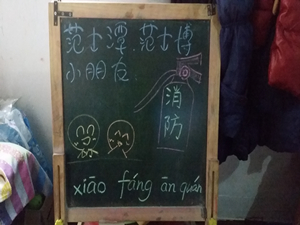 范士潭、范士博
小朋友
消防
xiāo fáng ān quán